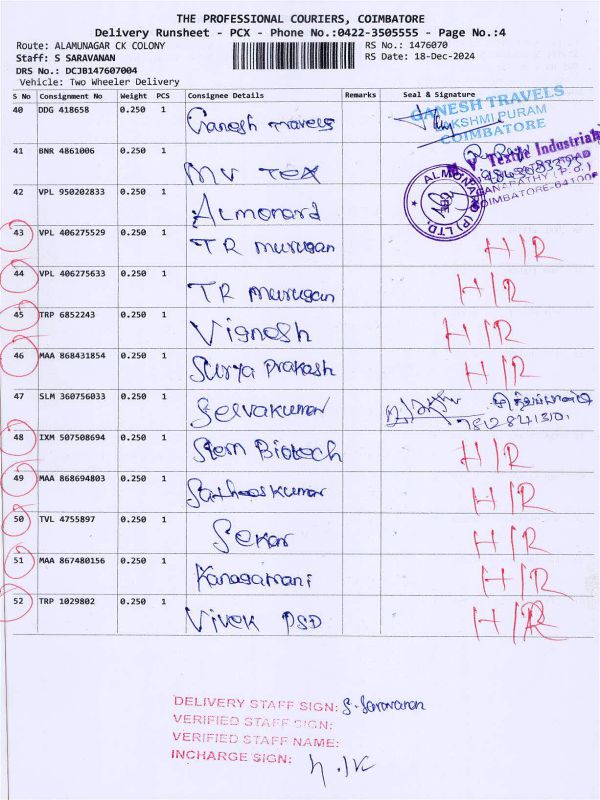 THE PROFESSIONAL COURIERS, COIMBATORE
Delivery Runsheet - PCX - Phone No.:0422-3505555 - Page No.:4
Route: ALAMUNAGAR CK COLONY RS No.: 1476070
Staff: S SARAVANAN RS Date: 18-Dec-2024
DRS No.: DCJB147607004
Vehicle: Two Wheeler Delivery
S No Consignment No Weight PCS Consignee Details Remarks Seal & Signature
40 DDG 418658 0.250 1 Ganesh travels GANESH TRAVELS
LAKSHMI PURAM
COIMBATORE
41 BNR 4861006 0.250 1 MV TEX Textile Industrial
42 VPL 950202833 0.250 1 Almonard ALMONARD (P) LTD.
GANAPATHY (P.O.)
43 VPL 406275529 0.250 1 TR murugan H/R
44 VPL 406275633 0.250 1 TR murugan H/R
45 TRP 6852243 0.250 1 Vignesh H/R
46 MAA 868431854 0.250 1 Surya Prakash H/R
47 SLM 360756033 0.250 1 Selvakumar
48 IXM 507508694 0.250 1 Stem Biotech H/R
49 MAA 868694803 0.250 1 Satheeskumar H/R
50 TVL 4755897 0.250 1 Sekar H/R
51 MAA 867480156 0.250 1 Kanagamani H/R
52 TRP 1029802 0.250 1 Vivek PSD H/R
DELIVERY STAFF SIGN: S. Saravanan
VERIFIED STAFF SIGN:
VERIFIED STAFF NAME:
INCHARGE SIGN: